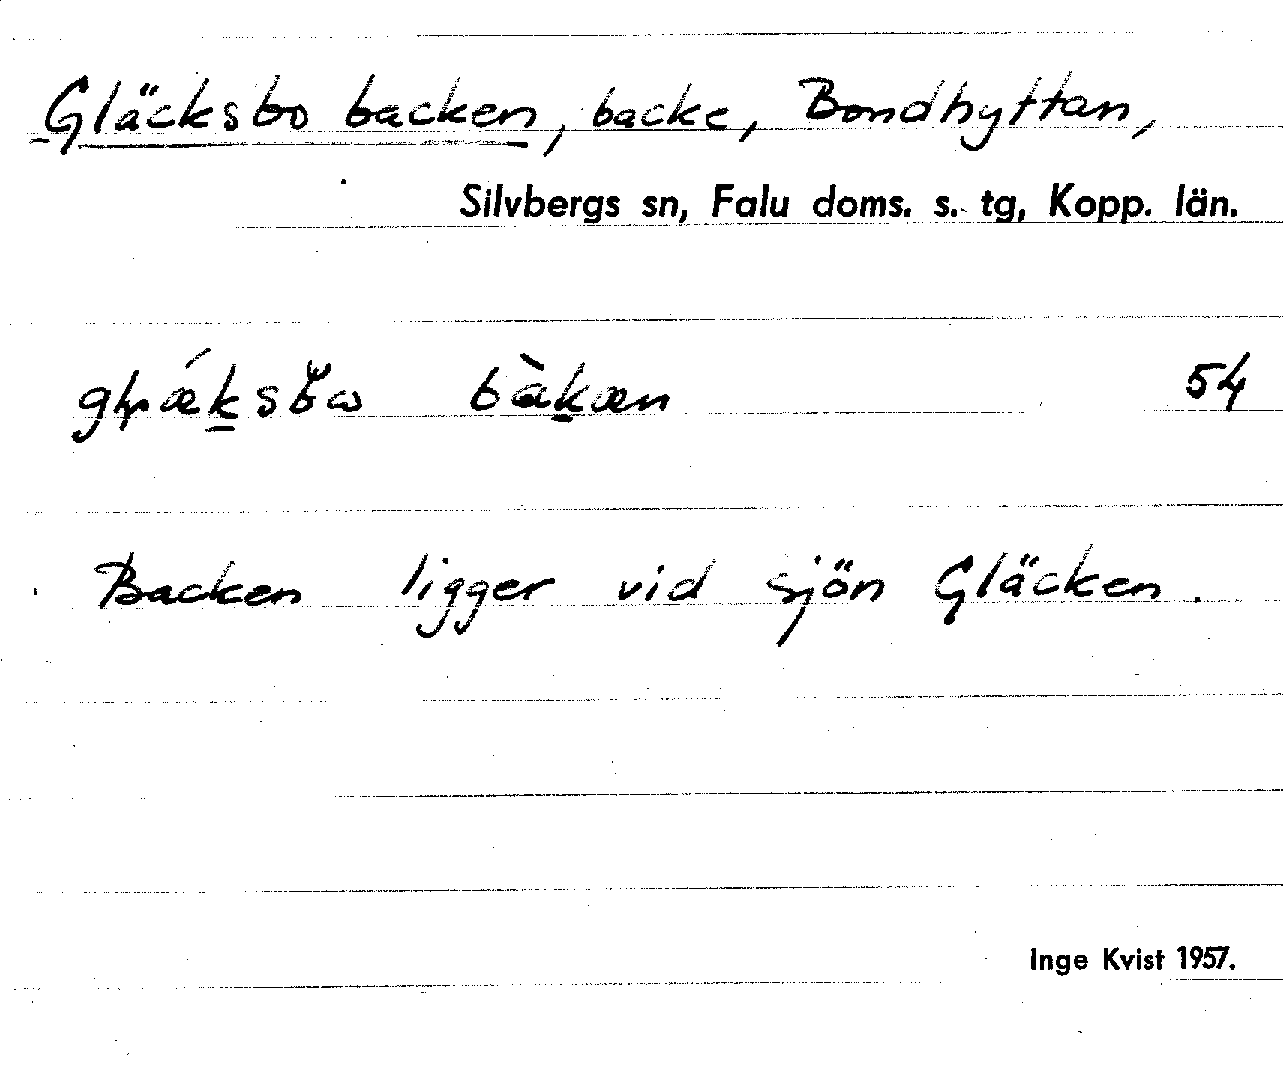 Gläcksbo backen, backe, Bondhyttan,
Silvbergs sn, Falu doms. s. tg, Kopp. län.
bàkæn 54
Backen ligger vid sjön Gläcken.
Inge Kvist 1957.